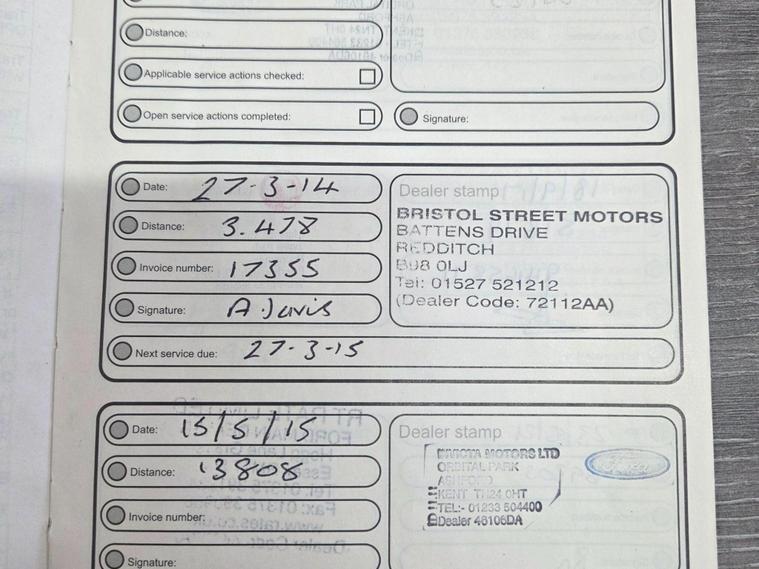 Distance:
Applicable service actions checked:
Open service actions completed:
Signature:
Date: 27-3-14
Distance: 3.478
Invoice number: 17355
Signature: A.Jarvis
Next service due: 27-3-15
Dealer stamp
BRISTOL STREET MOTORS
BATTENS DRIVE
REDDITCH
B98 0LJ
Tel: 01527 521212
(Dealer Code: 72112AA)
Date: 15/5/15
Distance: 13808
Invoice number:
Signature:
Dealer stamp
INVICTA MOTORS LTD
ORBITAL PARK
ASHFORD
KENT TN24 0HT
TEL:- 01233 504400
Dealer 46106DA
Ford